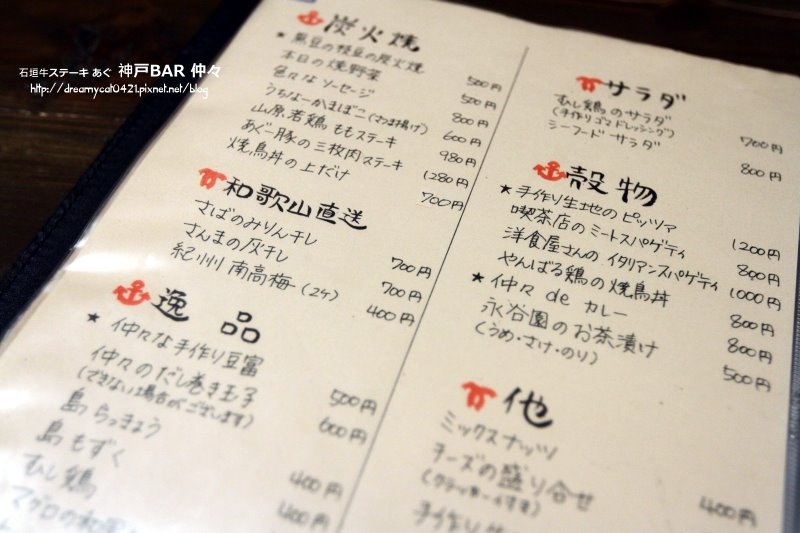 石垣牛ステーキ あぐ 神戸BAR 仲々
http://dreamycat0421.pixnet.net/blog
炭火焼
★ 黒豆の枝豆の炭火焼 500円
本日の焼野菜 500円
色々なソーセージ 800円
うちなーかまぼこ(おまかせ揚げ) 600円
山原若鶏 ももステーキ 980円
あぐー豚の三枚肉ステーキ 1280円
焼鳥丼の上だけ 700円
和歌山直送
さばのみりん干し 700円
さんまの灰干し 700円
紀州 南高梅 (2ケ) 400円
逸品
★ 仲々な手作り豆富 500円
仲々のだし巻き玉子 600円
(できない場合がございます)
島 らっきょう 400円
島 もずく 400円
むし鶏
マグロの和風
サラダ
むし鶏のサラダ 700円
(手作りゴマドレッシング)
シーフードサラダ 800円
殻物
★ 手作り生地のピッツァ 1200円
喫茶店のミートスパゲティ 800円
洋食屋さんのイタリアンスパゲティ 1000円
やんばる鶏の焼鳥丼 800円
★ 仲々 de カレー 800円
永谷園のお茶漬け 500円
(うめ・さけ・のり)
他
ミックスナッツ 400円
チーズの盛り合せ
(クラッカー付きます)
手作り